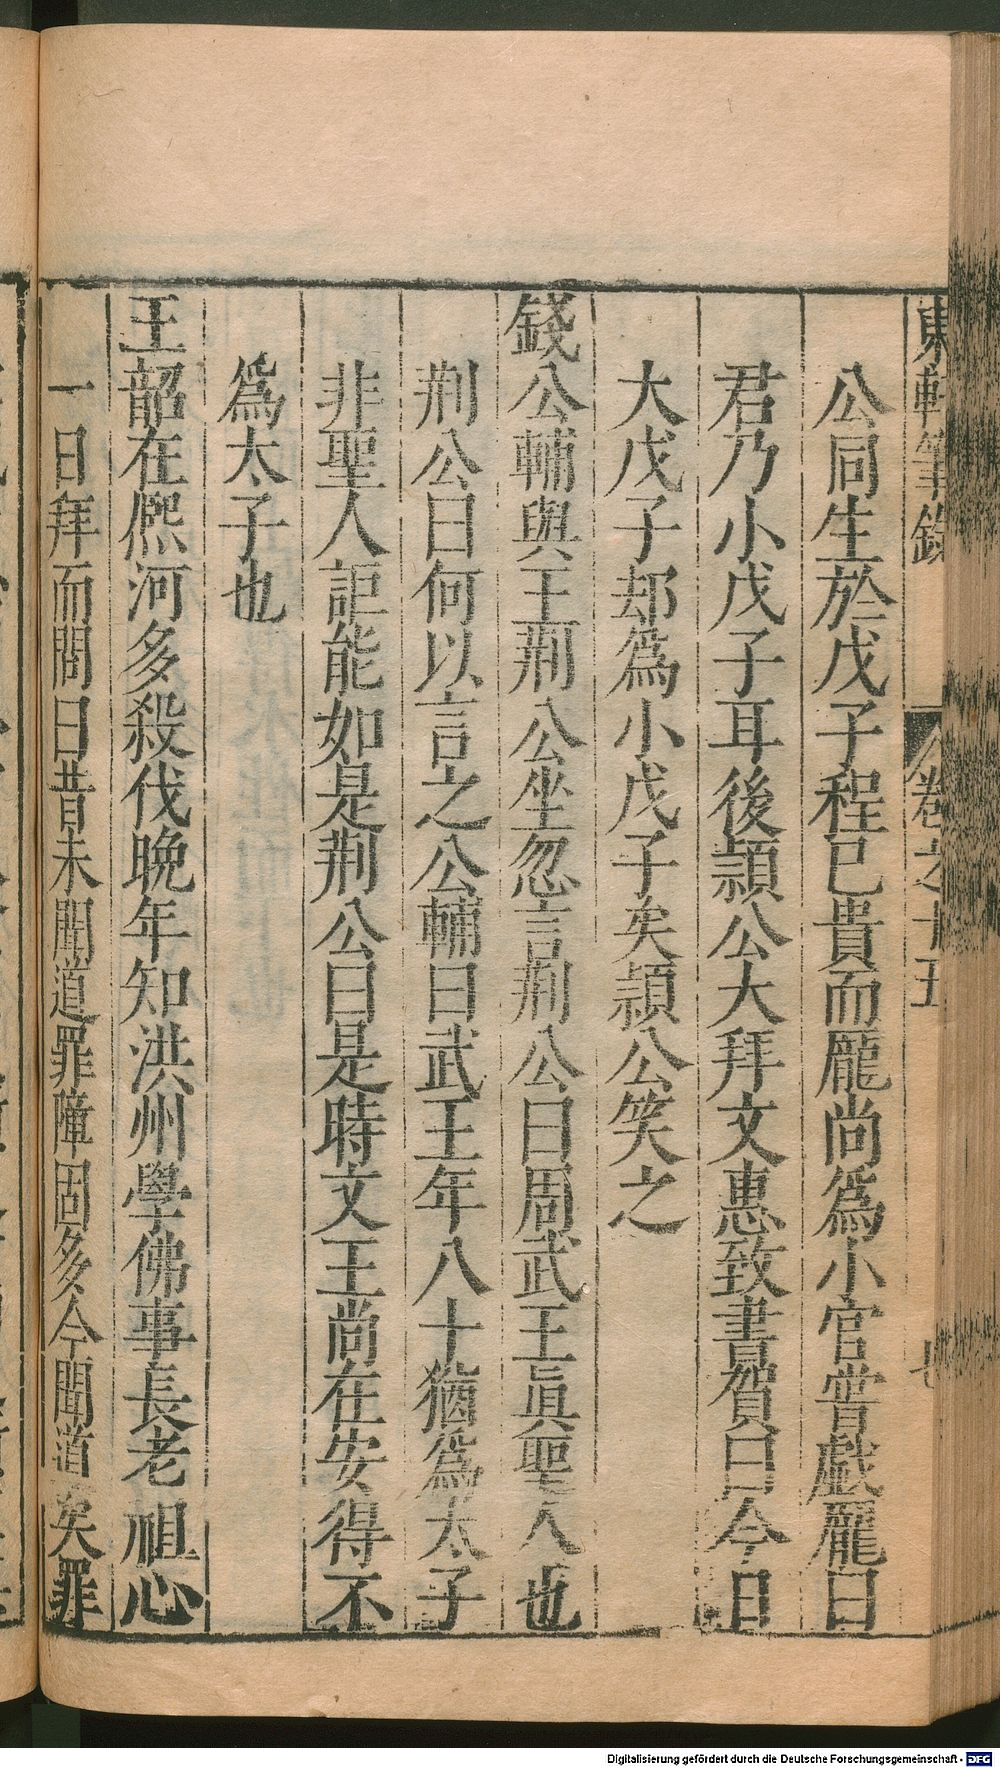 東軒筆錄 卷之十五 七
公同生於戊子程已貴而龐尚爲小官嘗戲龐曰
君乃小戊子耳後頴公大拜文惠致書賀曰今日
大戊子却爲小戊子矣頴公笑之
錢公輔與王荆公坐忽言荆公曰周武王眞聖人也
荆公曰何以言之公輔曰武王年八十猶爲太子
非聖人詎能如是荆公曰是時文王尚在安得不
爲太子也
王韶在熈河多殺伐晩年知洪州學佛事長老祖心
一日拜而問曰昔未聞道罪障固多今聞道矣罪
Digitalisierung gefördert durch die Deutsche Forschungsgemeinschaft - DFG